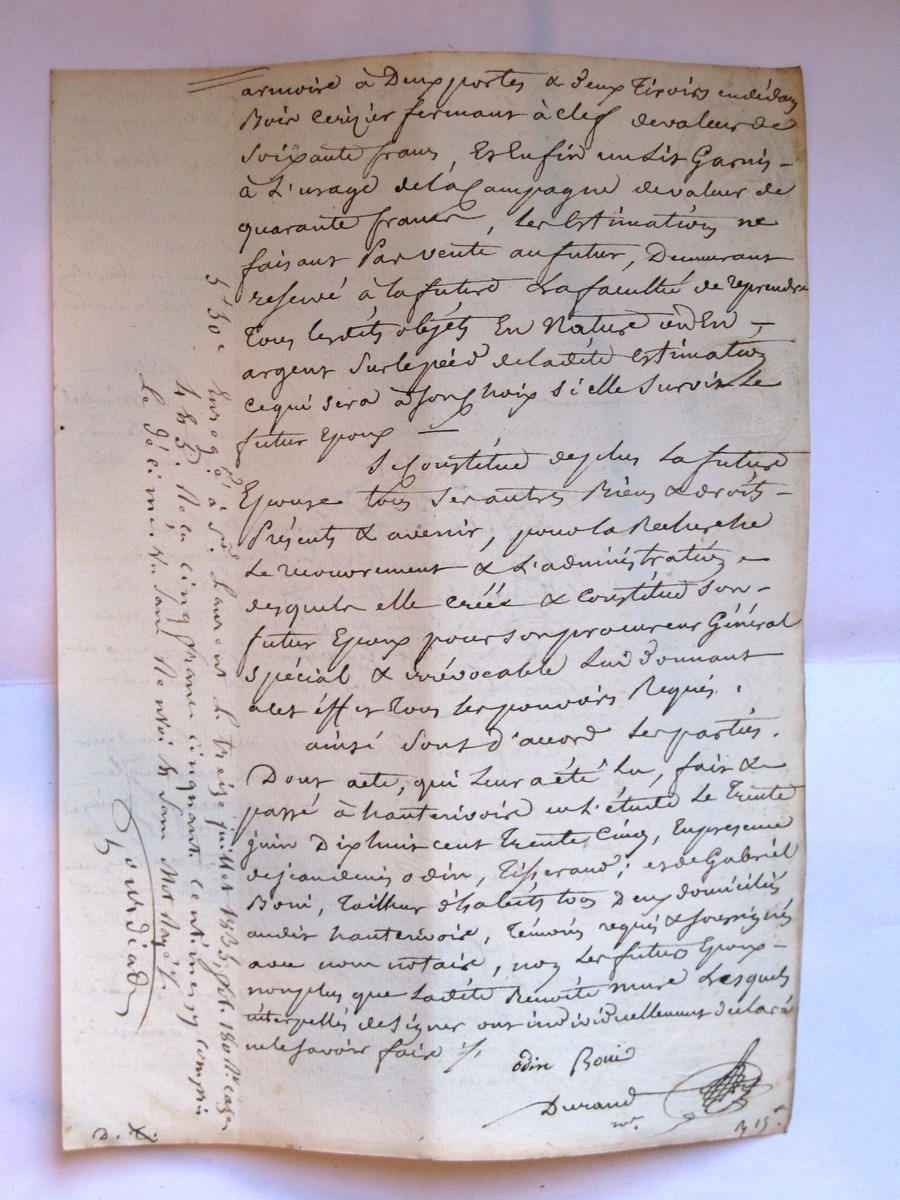 armoire à Deux portes & deux Tiroirs endédans
Bois Cerizier fermant à clef de valeur de
soixante francs, Et Enfin un Lit Garni
à L'usage de la Campagne de valeur de
quarante francs, Les Estimations ne
faisant Pas vente au futur, Demeurant
reservé à la future La faculté de reprendre
Tous lesdits objets En Nature ou En
argent sur le pied de ladite Estimation
ce qui sera à son choix si elle survit Le
futur Epoux
Se Constitue de plus La future
Epouse tous ses autres Biens & droits
Présents & avenir, pour la Recherche
Le recouvrement & L'administration
desquels elle créée & Constitue son
futur Epoux pour son procureur Général
spécial & irrévocable Lui donnant
a cet effet tous les pouvoirs Requis.
ainsi sont d'accord Les parties.
Dont acte, qui Leur a été Lu, fait &
passé à hauterivoire en L'étude Le Trente
juin Dix huit cent Trente Cinq, En presence
de jean denis odin, Tisserand; et de Gabriel
Boni, Tailleur d'habits tous Deux domiciliés
audit hauterivoire, Témoins requis & soussignés
avec nous notaire, non Les futurs Epoux
non plus que Ladite Benoite mure Lesquels
interpellés de signer ont individuellement déclaré
ne le savoir faire
odin Boni
Durand
nre.
Enregé. à St. Laurent Le treize juillet 1835, fol. 180 Ro. case
Reçu cinq francs cinquante centimes y compris
Le décime.
D. X